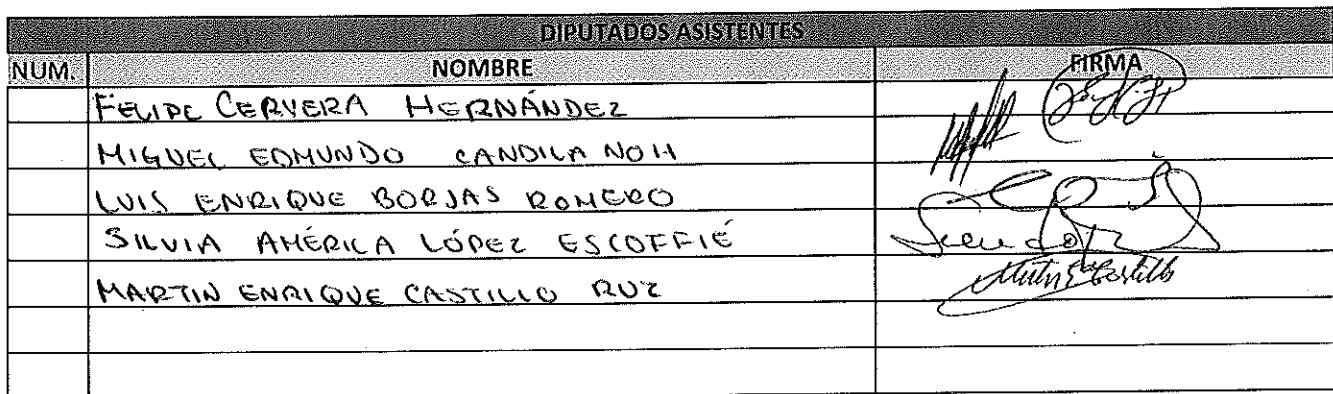 DIPUTADOS ASISTENTES
NUM. NOMBRE FIRMA
FELIPE CERVERA HERNÁNDEZ
MIGUEL EDMUNDO CANDILA NOH
LUIS ENRIQUE BORJAS ROMERO
SILVIA AMÉRICA LÓPEZ ESCOFFIÉ
MARTIN ENRIQUE CASTILLO RUZ